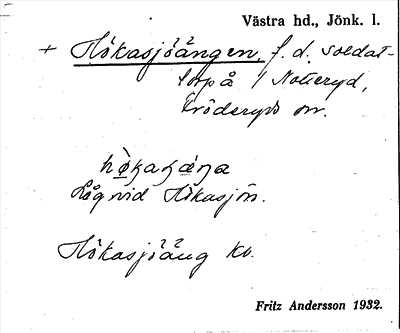 Västra hd., Jönk. l.
+ Hökasjöängen, f. d. soldat-
torp å / Notteryd,
Fröderyds sn.
Låg vid Hökasjön.
Hökasjöäng kb.
Fritz Andersson 1932.